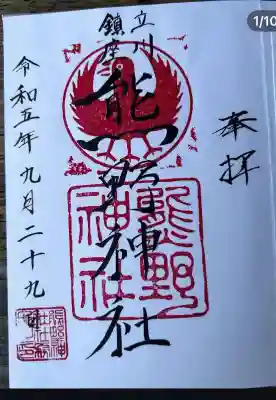 1/10
奉拝
立川
鎮座
熊野神社
熊野
神社
令和五年九月二十九